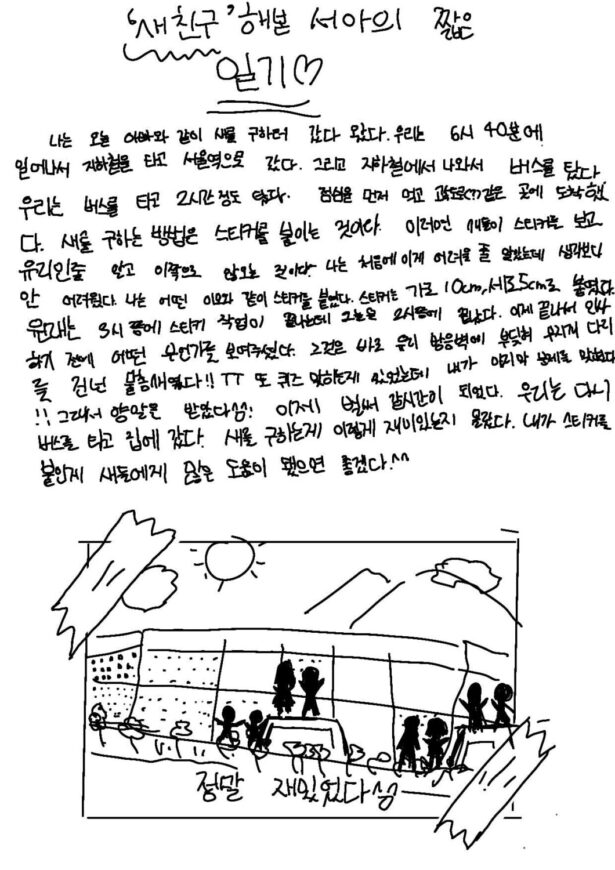 '새친구' 해본 서아의 짧은
일기♡
나는 오늘 아빠와 같이 새를 구하러 갔다 왔다. 우리는 6시 40분에
일어나서 지하철을 타고 서울역으로 갔다. 그리고 지하철에서 나와서 버스를 탔다
우리는 버스를 타고 2시간 정도 갔다. 점심을 먼저 먹고 고속도로(??)같은 곳에 도착했
다. 새를 구하는 방법은 스티커를 붙이는 것이다. 이러면 새들이 스티커를 보고
유리인줄 알고 이쪽으로 안오는 것이다 나는 처음에 이게 어려울 줄 알았는데 생각보다
안 어려웠다. 나는 어떤 이모와 같이 스티커를 붙였다. 스티커는 가로 10cm, 세로 5cm로 붙였다.
원래는 3시 쯤에 스티커 작업이 끝나는데 오늘은 2시쯤에 끝났다. 이제 끝나서 인사
하기 전에 어떤 무언가를 보여주셨다. 그것은 바로 유리 방음벽에 부딪혀 우리게 다리
를 건넌 물총새였다!! TT 또 퀴즈 맞히는게 있었는데 내가 마지막 문제를 맞혔다
!! 그래서 양말을 받았다성! 이제 벌써 갈시간이 되었다. 우리는 다시
버스를 타고 집에 갔다. 새를 구하는게 이렇게 재미있는지 몰랐다. 내가 스티커를
붙인게 새들에게 많은 도움이 됐으면 좋겠다!^^
정말 재밌었다성